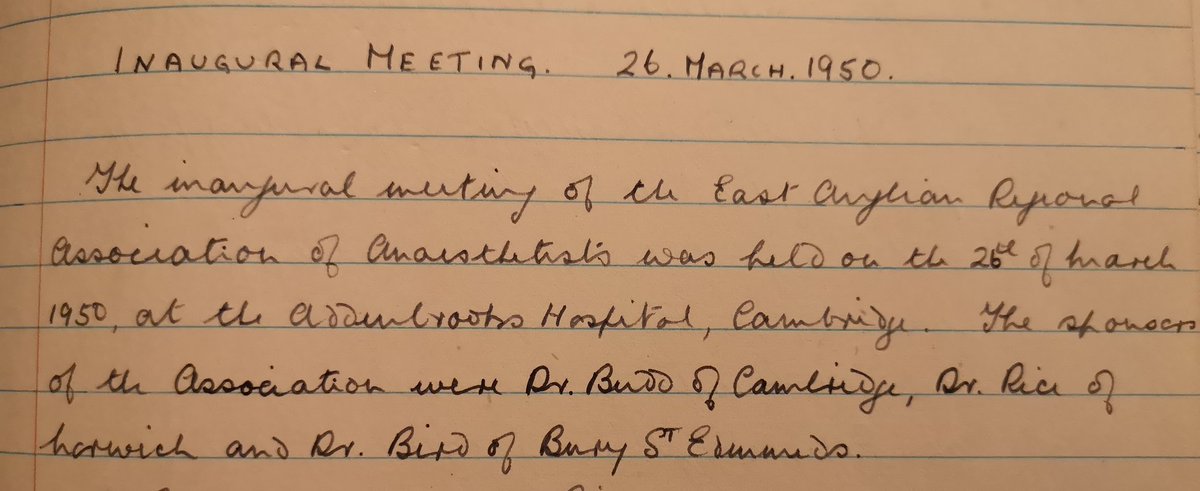 INAUGURAL MEETING. 26. MARCH. 1950.
The inaugural meeting of the East Anglian Regional
Association of Anaesthetists was held on the 26th of March
1950, at the Addenbrooks Hospital, Cambridge. The sponsors
of the Association were Dr. Budd of Cambridge, Dr. Rice of
Norwich and Dr. Bird of Bury ST Edmunds.